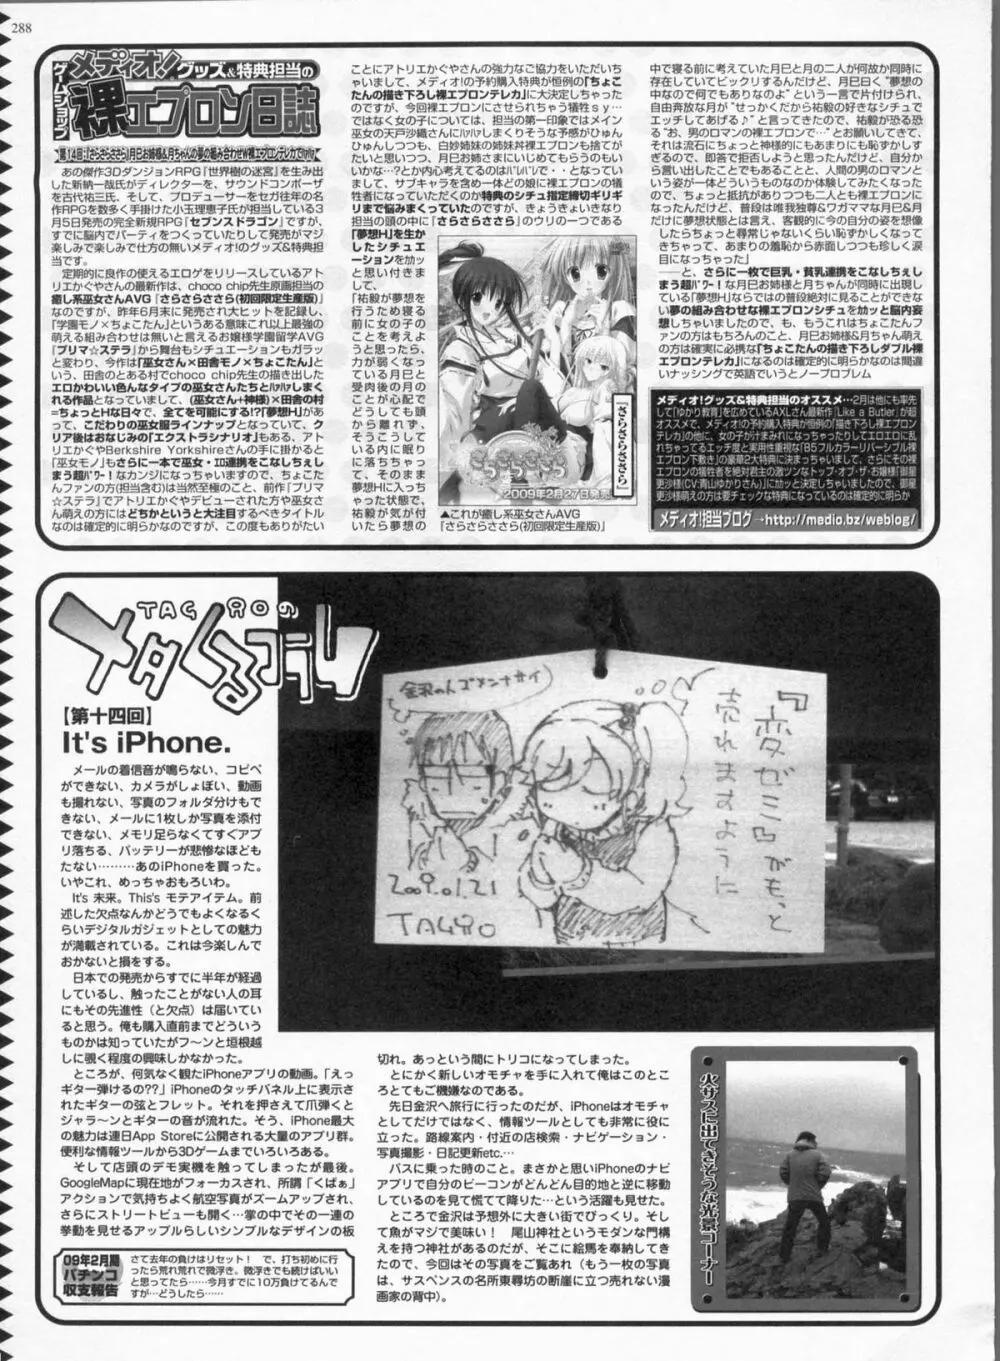 288
ゲームショップ
メディオ!グッズ&特典担当の
裸エプロン日誌
第14回:『さらさらささら』月巳お姉様&月ちゃんの夢の組み合わせW裸エプロンテレカでハァハァ
あの傑作3DダンジョンRPG『世界樹の迷宮』を生み出
した新納一哉氏がディレクターを、サウンドコンポーザ
を古代祐三氏、そして、プロデューサーをセガ往年の名
作RPGを数多く手掛けた小玉理恵子氏が担当している3
月5日発売の完全新規RPG『セブンスドラゴン』ですが、
すでに脳内でパーティをつくっていたりして発売がマジ
楽しみで楽しみで仕方の無いメディオ!のグッズ&特典担
当です。
定期的に良作の使えるエロゲをリリースしているアト
リエかぐやさんの最新作は、choco chip先生原画担当の
癒し系巫女さんAVG『さらさらささら(初回限定生産版)』
なのですが、昨年6月末に発売され大ヒットを記録し、
「学園モノ×ちょこたん」というある意味これ以上最強の
萌える組み合わせは無いと言えるお嬢様学園留学AVG
『プリマ☆ステラ』から舞台もシチュエーションもガラッ
と変わり、今作は「巫女さん×田舎モノ×ちょこたん」と
いう、田舎のとある村でchoco chip先生の描き出した
エロかわいい色んなタイプの巫女さんたちとハァハァしまく
れる作品となっていまして、(巫女さん+神様)×田舎の村
=ちょっとHな日々で、全てを可能にする!?「夢想HJ」があ
って、こだわりの巫女服ラインナップとなっていて、ク
リア後はおなじみの「エクストラシナリオ」もある、アト
リエかぐやBerkshire Yorkshireさんの手に掛かると
「巫女モノ」もさらに一本で巫女・エロ連携をこなしちぇし
まう超パワー!なカンジになっちゃいますので、ちょこ
たんファンの方(担当含む)は当然至極のこと、前作『プリマ
☆ステラ』でアトリエかぐやデビューされた方や巫女さ
ん萌えの方にはどちかというと大注目するべきタイトル
なのは確定的に明らかなのですが、この度もありがたい
ことにアトリエかぐやさんの強力なご協力をいただいち
ゃいまして、メディオ!の予約購入特典が恒例の「ちょこ
たんの描き下ろし裸エプロンテレカ」に大決定しちゃった
のですが、今回裸エプロンにさせられちゃう犠牲ｓｙ…
ではなく女の子については、担当の第一印象ではメイン
巫女の天戸沙織さんにハァハァしまくりそうな予感がひゅん
ひゅんしつつも、白妙姉妹の姉妹丼裸エプロンも捨てが
たいと思いつつ、月巳お姉さまにいじめてもらうのもい
いかな…?とか内心考えてるのはバレバレで・・となってい
まして、サブキャラを含め一体どの娘に裸エプロンの犠
牲者になっていただくのか特典のシチュ指定締切ギリギ
リまで悩みまくっていたのですが、きょうきょいきなり
担当の頭の中に『さらさらささら』のウリの一つである
「夢想HJ」を生か
したシチュエ
ーションをカッ
と思い付きま
して、
「祐毅が夢想を
行うため寝る
前に女の子の
ことを考えよ
うと思ったら、
力が弱くなっ
ている月巳と
受肉後の月の
ことが心配で
どうしても頭
から離れず、
そうこうして
いる内に眠り
に落ちちゃっ
て、そのまま
夢想HJに入っち
ゃった状態で、
祐毅が気が付
いたら夢想の
『さらさらささら』
さらさらささら
2009年2月27日発売
▲これが癒し系巫女さんAVG
『さらさらささら(初回限定生産版)』
中で寝る前に考えていた月巳と月の二人が何故か同時に
存在していてビックリするんだけど、月巳曰く“夢想の
中なので何でもありなのよ”という一言で片付けられ、
自由奔放な月が“せっかくだから祐毅の好きなシチュで
エッチしてあげる♪”と言ってきたので、祐毅が恐る恐
る“お、男のロマンの裸エプロンで…”とお願いしてきて、
それは流石にちょっと神様的にもあまりにも恥ずかしす
ぎるので、即答で拒否しようと思ったんだけど、自分か
ら言い出したことでもあることと、人間の男のロマンと
いう姿が一体どういうものなのか体験してみたくなった
ので、ちょっと抵抗がありつつも二人とも裸エプロンに
なったんだけど、普段は唯我独尊&ワガママな月巳&月だ
けに夢想状態とは言え、客観的に今の自分の姿を想像
したらちょっと尋常じゃないくらい恥ずかしくなって
きちゃって、あまりの羞恥から赤面しつつも珍しく涙
目になっちゃった」
――と、さらに一枚で巨乳・貧乳連携をこなしちぇし
まう超パワー!な月巳お姉様と月ちゃんが同時に出現し
ている「夢想HJ」ならではの普段絶対に見ることができな
い夢の組み合わせな裸エプロンシチュをカッと脳内妄
想しちゃいましたので、も、もうこれはちょこたんファ
ンの方はもちろんのこと、月巳お姉様&月ちゃん萌え
の方は確実に必携な「ちょこたんの描き下ろしダブル裸
エプロンテレカ」になるのは確定的に明らかなのは間違
いナッシングで英語でいうとノープロブレム
メディオ!グッズ&特典担当のオススメ…2月は他にも率先
して「ゆかり教育」を広めているAXLさん最新作『Like a Butler』が超
オススメで、メディオ!の予約購入特典が恒例の「描き下ろし裸エプロ
ンテレカ」の他に、女の子がけまみれになっちゃったりしてエロエロに乱
れちゃってるエッチ度と実用性重視な「B5フルカラーリバーシブル裸
エプロン下敷き」の豪華2大特典に決まっちゃいまして、さらにその裸
エプロンの犠牲者を絶対君主の激ツンなトップ・オブ・ザ・お嬢様「御星
更沙様(CV:青山ゆかりさん)」にカッと決定しちゃいましたので、御星
更沙様萌えの方は要チェックな特典になっているのは確定的に明らか
メディオ!担当ブログ→http://medio.bz/weblog/
TAGROの
メタくるコラム
【第十四回】
It's iPhone.
メールの着信音が鳴らない、コピペ
ができない、カメラがしょぼい、動画
も撮れない、写真のフォルダ分けもで
きない、メールに1枚しか写真を添付
できない、メモリ足らなくてすぐアプ
リ落ちる、バッテリーが悲惨なほども
たない………あのiPhoneを買った。
いやこれ、めっちゃおもろいわ。
It's 未来。This's モテアイテム。前
述した欠点なんかどうでもよくなるく
らいデジタルガジェットとしての魅力
が満載されている。これは今楽しんで
おかないと損をする。
日本での発売からすでに半年が経過
しているし、触ったことがない人の耳
にもその先進性(と欠点)は届いてい
ると思う。俺も購入直前までどういう
ものかは知っていたがフ〜ンと垣根越
しに覗く程度の興味しかなかった。
ところが、何気なく観たiPhoneアプリの動画。「えっ
ギター弾けるの??」iPhoneのタッチパネル上に表示さ
れたギターの弦とフレット。それを押さえて爪弾くと
ジャラ〜ンとギターの音が流れた。そう、iPhone最大
の魅力は連日App Storeに公開される大量のアプリ群。
便利な情報ツールから3Dゲームまでいろいろある。
そして店頭のデモ実機を触ってしまったが最後。
GoogleMapに現在地がフォーカスされ、所謂「くぱぁ」
アクションで気持ちよく航空写真がズームアップされ、
さらにストリートビューも開く…掌の中でその一連の
挙動を見せるアップルらしいシンプルなデザインの板
切れ。あっという間にトリコになってしまった。
とにかく新しいオモチャを手に入れて俺はこのとこ
ろとてもご機嫌なのである。
先日金沢へ旅行に行ったのだが、iPhoneはオモチャ
としてだけではなく、情報ツールとしても非常に役に
立った。路線案内・付近の店検索・ナビゲーション・
写真撮影・日記更新etc.…
バスに乗った時のこと。まさかと思いiPhoneのナビ
アプリで自分のビーコンがどんどん目的地と逆に移動
しているのを見て慌てて降りた…という活躍も見せた。
ところで金沢は予想外に大きい街でびっくり。そし
て魚がマジで美味い! 尾山神社というモダンな門構
えを持つ神社があるのだが、そこに絵馬を奉納してき
たので、今回はその写真をご覧あれ(もう一枚の写真
は、サスペンスの名所東尋坊の断崖に立つ売れない漫
画家の背中)。
金沢の人ゴメンナサイ
『変ゼミ』がもっと
売れますように
2009.01.21
TAGRO
09年2月期
パチンコ
収支報告
さて去年の負けはリセット! で、打ち初めに行
ったら荒れ荒れで微浮き。微浮きでも続けばいい
と思ってたら……今月すでに10万負けてるんで
すが…どうしたら……
火サスに出てきそうな光景コーナー